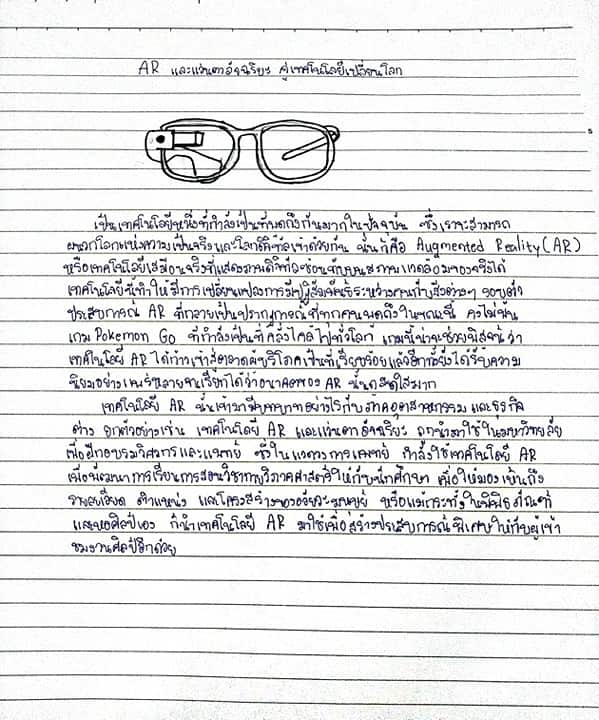 AR และแว่นตาอัจฉริยะ สู่เทคโนโลยีเปลี่ยนโลก
เป็นเทคโนโลยีหนึ่งที่กำลังเป็นที่พูดถึงกันมากในปัจจุบัน ซึ่งเราจะสามารถ
ผนวกโลกแห่งความเป็นจริงและโลกดิจิทัลเข้าด้วยกัน นั่นก็คือ Augmented Reality (AR)
หรือเทคโนโลยีเสมือนจริงที่แสดงภาพดิจิทัลซ้อนทับบนสภาพแวดล้อมของจริงได้
เทคโนโลยีนี้ทำให้มีการเปลี่ยนแปลงการมีปฏิสัมพันธ์ระหว่างคนกับสิ่งต่างๆ รอบตัว
ประสบการณ์ AR ที่กลายเป็นปรากฏการณ์ที่ทุกคนพูดถึงในขณะนี้ คงไม่พ้น
เกม Pokemon Go ที่กำลังเป็นที่คลั่งไคล้ไปทั่วโลก เกมนี้น่าจะช่วยพิสูจน์ว่า
เทคโนโลยี AR ได้ก้าวเข้าสู่ตลาดผู้บริโภคเป็นที่เรียบร้อยแล้วอีกทั้งยังได้รับความ
นิยมอย่างแพร่หลายจนเรียกได้ว่าอนาคตของ AR นั้นสดใสมาก
เทคโนโลยี AR นั้นเข้ามามีบทบาทอย่างไรกับภาคอุตสาหกรรมและธุรกิจ
ต่าง ยกตัวอย่างเช่น เทคโนโลยี AR และแว่นตาอัจฉริยะ ถูกนำมาใช้ในมหาวิทยาลัย
เพื่อฝึกอบรมวิศวกรและแพทย์ ซึ่งในแวดวงการแพทย์ กำลังใช้เทคโนโลยี AR
เพื่อพัฒนาการเรียนการสอนวิชากายวิภาคศาสตร์ให้กับนักศึกษา เพื่อให้มองเห็นถึง
รายละเอียด ตำแหน่ง และโครงสร้างของอวัยวะมนุษย์ หรือแม้กระทั่งในพิพิธภัณฑ์
และหอศิลป์เอง ก็นำเทคโนโลยี AR มาใช้เพื่อสร้างประสบการณ์พิเศษให้กับผู้เข้า
ชมงานศิลป์อีกด้วย